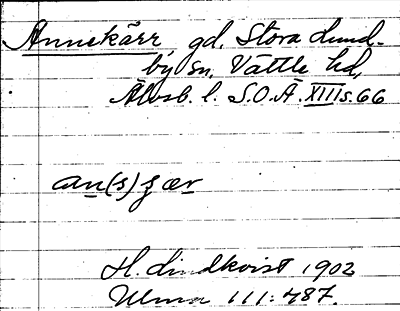 Annekärr, gd. Stora Lund-
by sn, Vättle hd,
Älvsb. l. S.O.Ä. XIII s. 66
an(s)ʒær
H. Lindkvist 1902
Ulma 111:487.